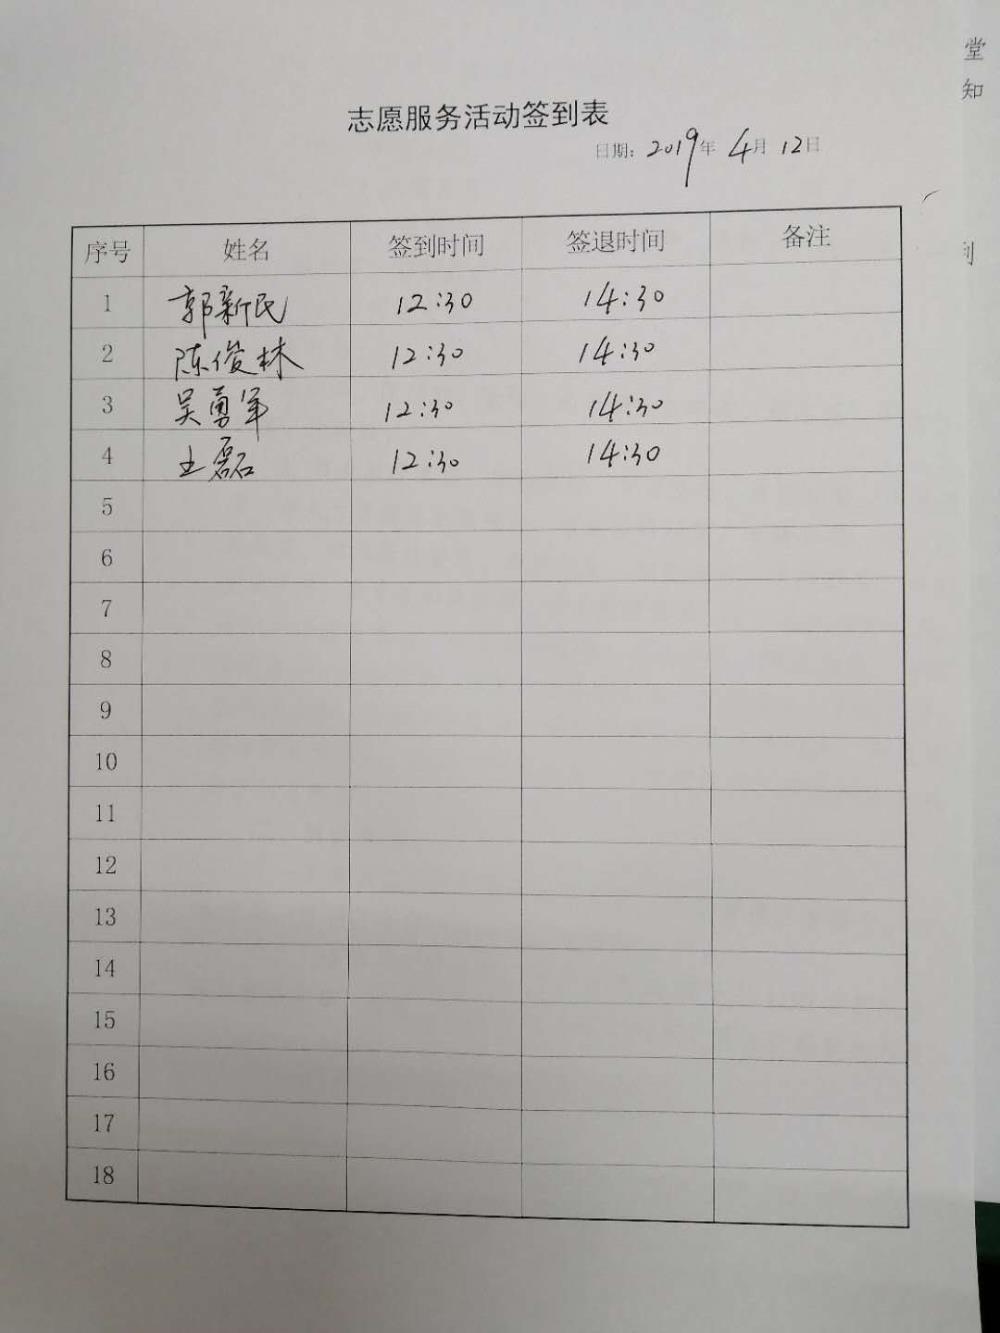 堂
知
志愿服务活动签到表
日期：2019年 4月 12日
到
序号 姓名 签到时间 签退时间 备注
1 郭新民 12:30 14:30
2 陈俊林 12:30 14:30
3 吴勇军 12:30 14:30
4 王磊 12:30 14:30
5
6
7
8
9
10
11
12
13
14
15
16
17
18